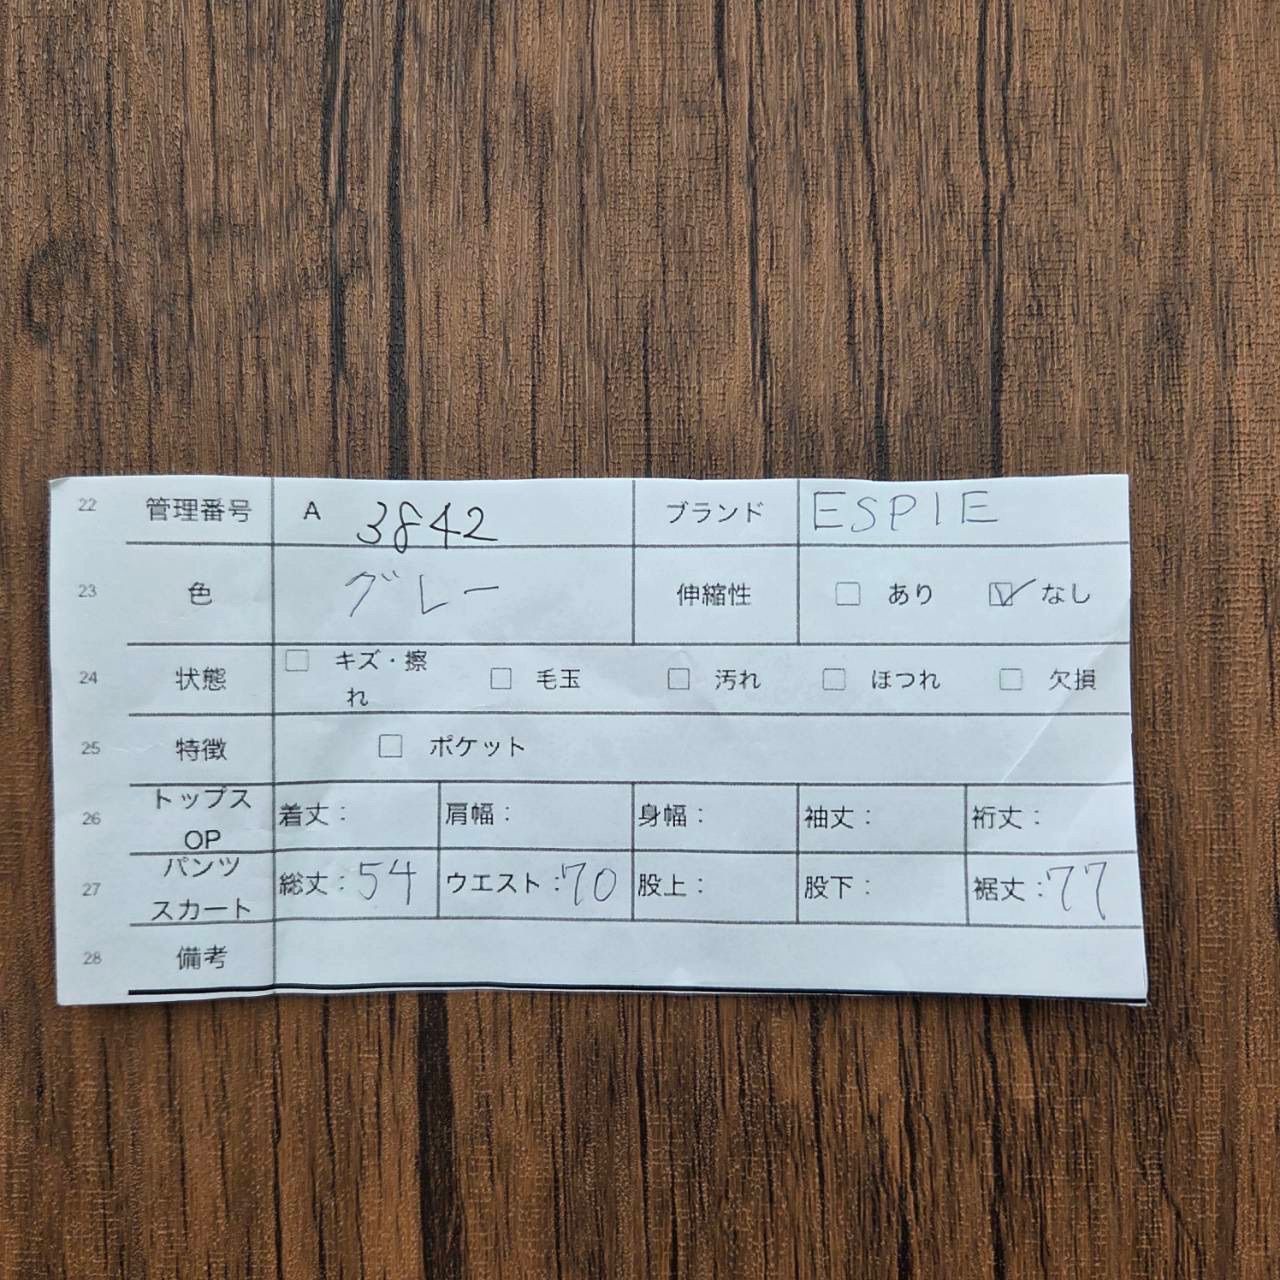 22 管理番号 A 3842 ブランド ESPIE
23 色 グレー 伸縮性 ☐ あり ☑ なし
24 状態 ☐ キズ・擦れ ☐ 毛玉 ☐ 汚れ ☐ ほつれ ☐ 欠損
25 特徴 ☐ ポケット
26 トップス OP 着丈: 肩幅: 身幅: 袖丈: 裄丈:
27 パンツ スカート 総丈:54 ウエスト:70 股上: 股下: 裾丈:77
28 備考